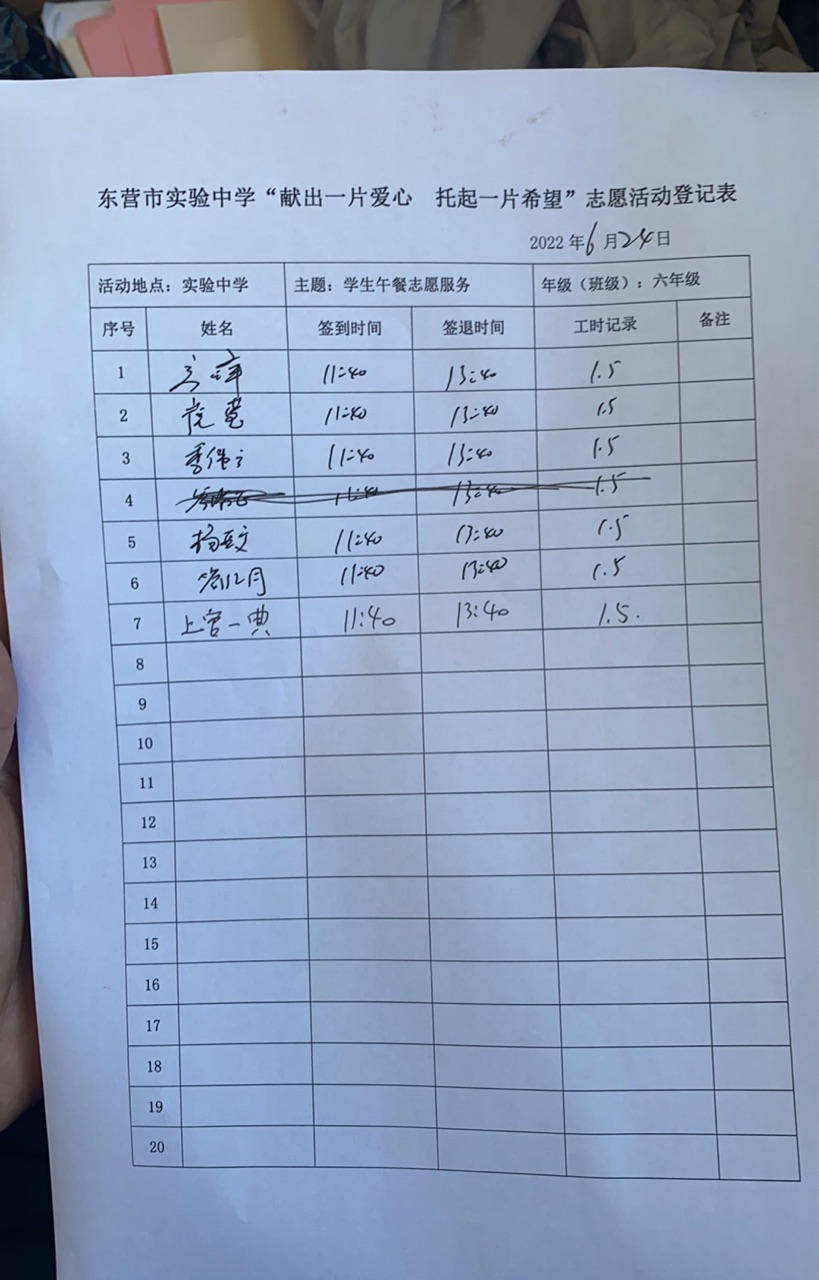 东营市实验中学“献出一片爱心 托起一片希望”志愿活动登记表
2022年6月24日
活动地点：实验中学 主题：学生午餐志愿服务 年级（班级）：六年级
序号 姓名 签到时间 签退时间 工时记录 备注
1 11:40 13:40 1.5
2 11:40 13:40 1.5
3 11:40 13:40 1.5
4 11:40 13:40 1.5
5 11:40 13:40 1.5
6 11:40 13:40 1.5
7 上官一典 11:40 13:40 1.5.
8
9
10
11
12
13
14
15
16
17
18
19
20